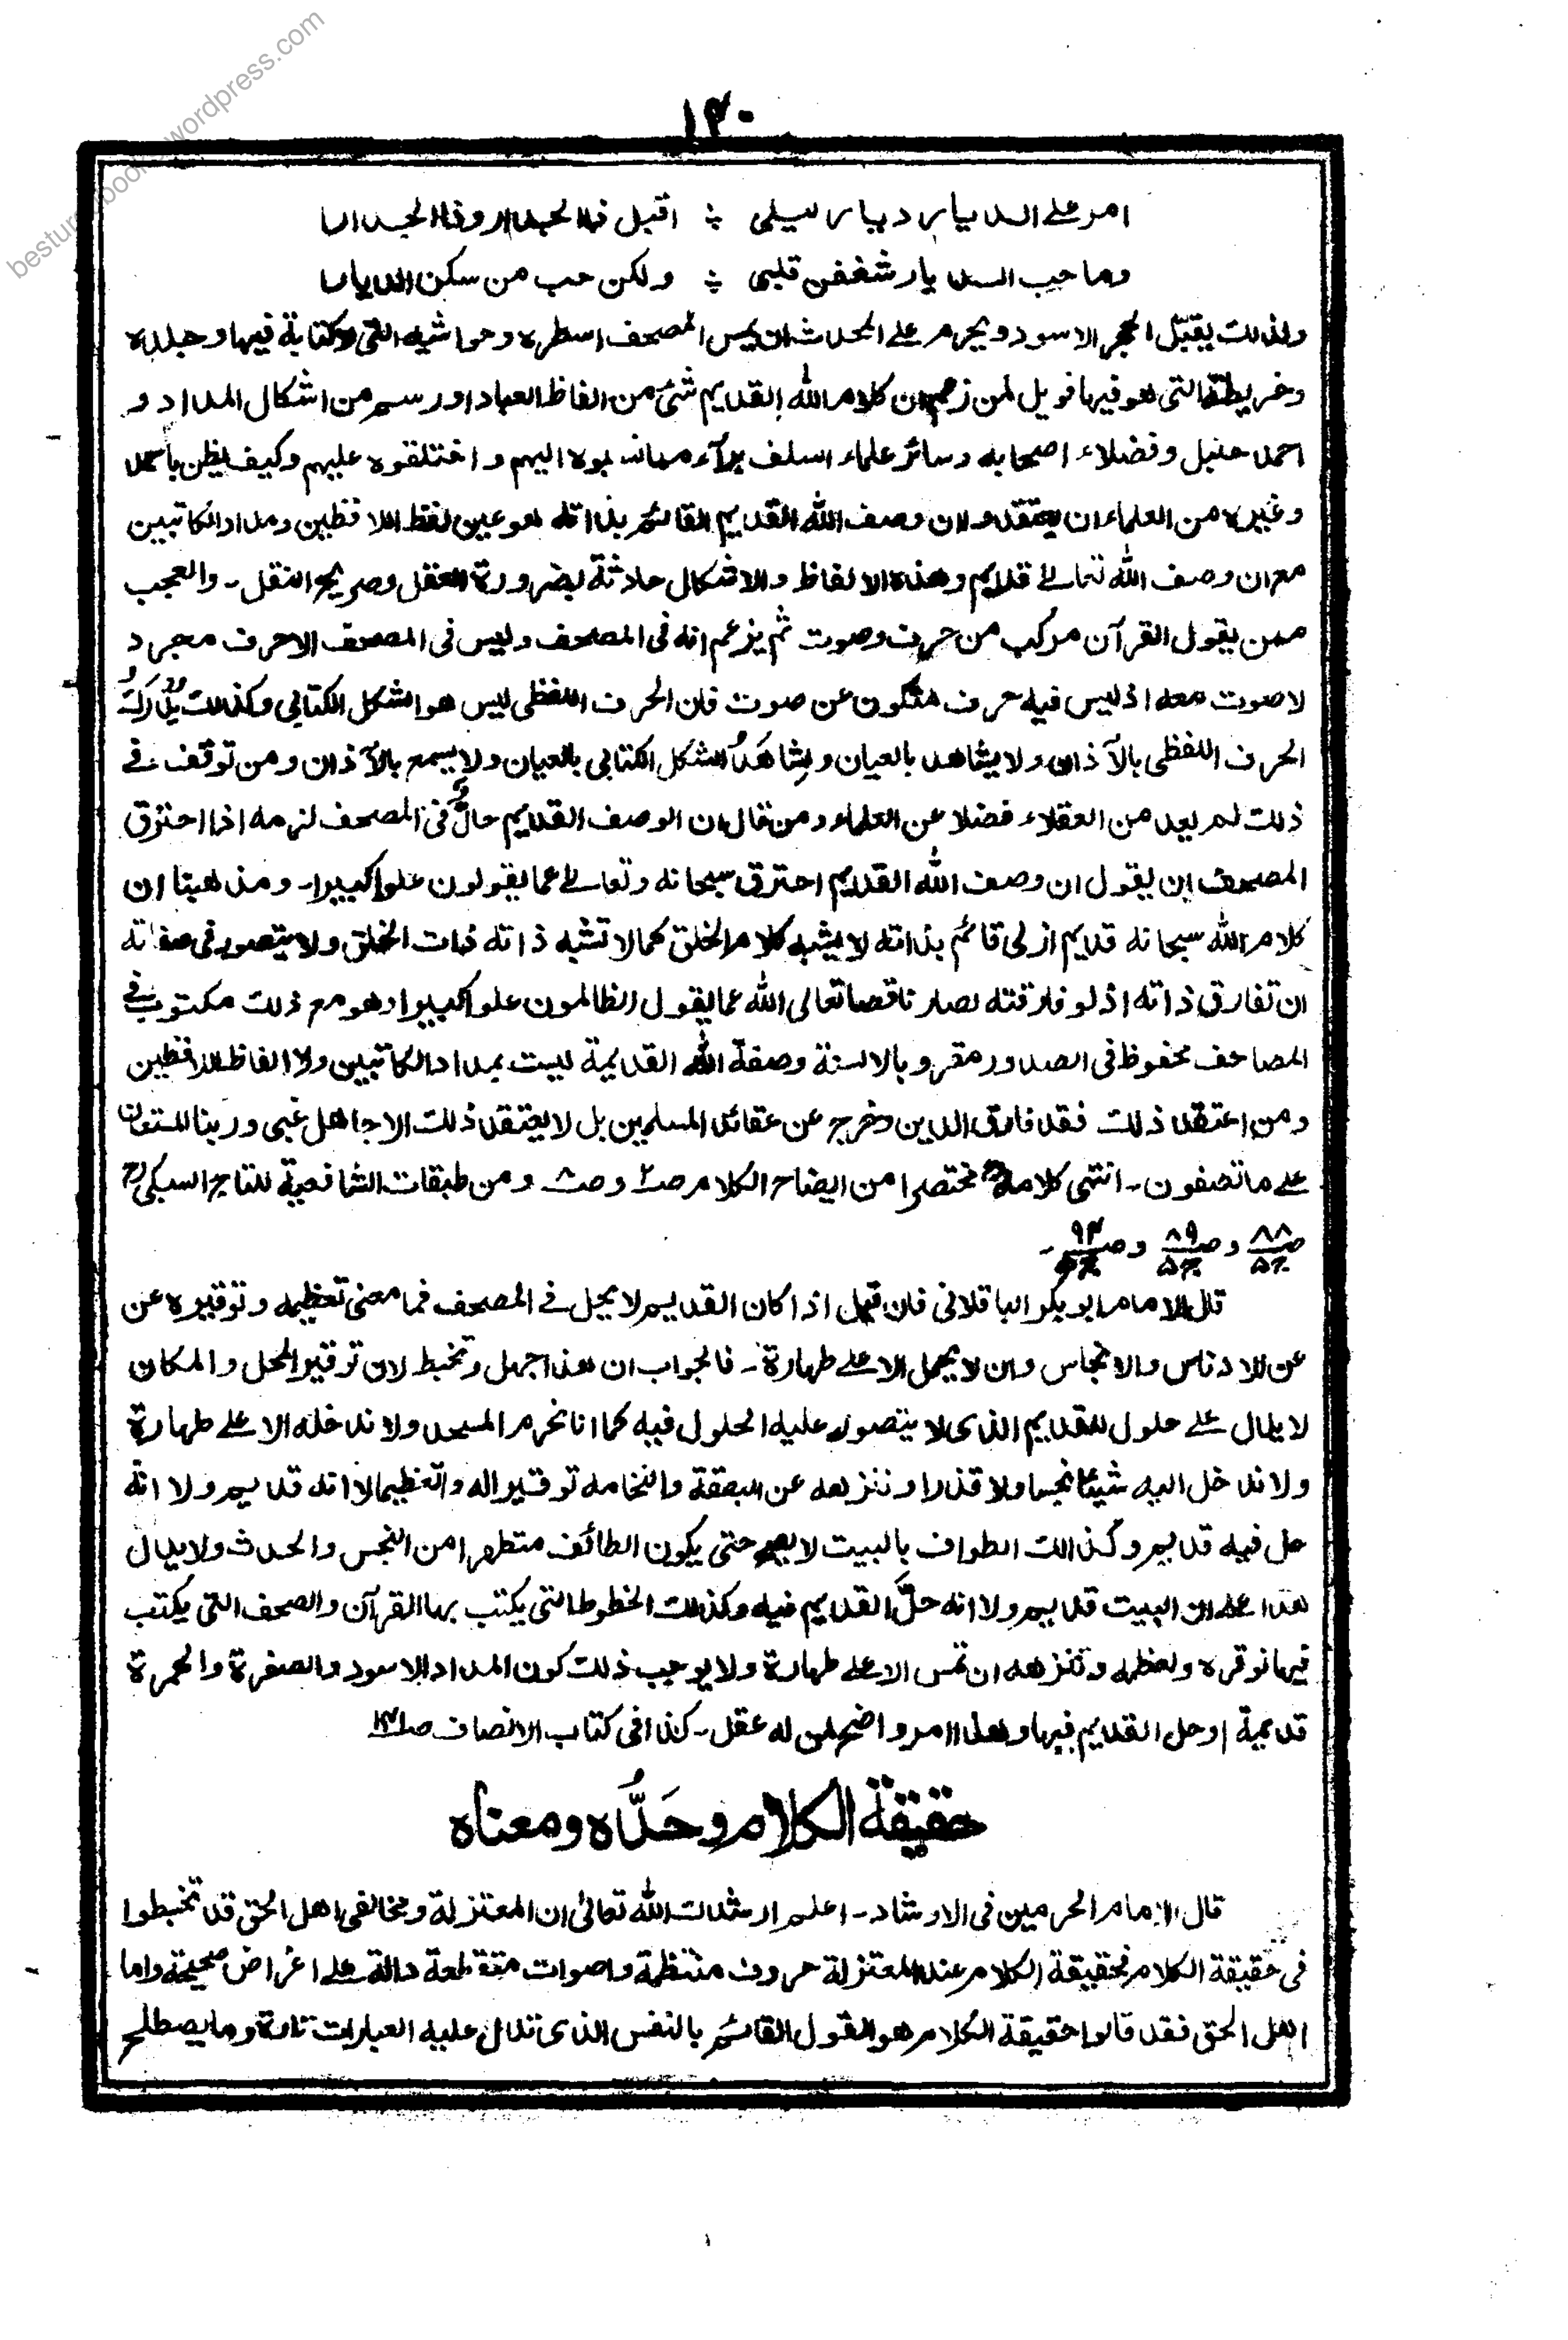 besturdubooks.wordpress.com
۱۴۰
امر علی الدیار دیار لیلی ؞ اقبل ذا الجدار وذا الجدارا
وما حب الدیار شغفن قلبی ؞ ولکن حب من سکن الدیارا
ولذلک یقبّل الحجر الاسود ویحرم علی المحدث ان یمس المصحف اسطره وحواشیه التی لا کتابة فیها وجلده
وخریطته التی هو فیها فویل لمن زعم ان کلام الله القدیم شئ من الفاظ العباد او رسم من اشکال المداد و
احمد حنبل وفضلاء اصحابه وسائر علماء السلف برآء مما نسبوه الیهم واختلقوه علیهم وکیف یظن باحمد
وغیره من العلماء ان یعتقدوا ان وصف الله القدیم القائم بذاته هو عین لفظ اللافظین ومداد الکاتبین
مع ان وصف الله تعالی قدیم وهذه الالفاظ والاشکال حادثة بضرورة العقل وصریح النقل۔ والعجب
ممن یقول القرآن مرکب من حرف وصوت ثم یزعم انه فی المصحف ولیس فی المصحف الا حرف مجرد
لا صوت معه اذ لیس فیه حرف متکون عن صوت فان الحرف اللفظی لیس هو الشکل الکتابی وکذلک یُدرَکُ
الحرف اللفظی بالآذان ولا یشاهد بالعیان ویشاهَدُ الشکل الکتابی بالعیان ولا یسمع بالآذان ومن توقف فی
ذلک لم یعد من العقلاء فضلا عن العلماء ومن قال ان الوصف القدیم حالٌّ فی المصحف لزمه اذا احترق
المصحف ان یقول ان وصف الله القدیم احترق سبحانه وتعالی عما یقولون علوا کبیرا۔ ومذهبنا ان
کلام الله سبحانه قدیم ازلی قائم بذاته لا یشبه کلام الخلق کما لا تشبه ذاته ذات الخلق ولا یتصور فی صفاته
ان تفارق ذاته اذ لو فارقته لصار ناقصا تعالی الله عما یقول الظالمون علوا کبیرا وهو مع ذلک مکتوب فی
المصاحف محفوظ فی الصدور مقرو بالالسنة وصفة الله القدیمة لیست بمداد الکاتبین ولا الفاظ اللافظین
ومن اعتقد ذلک فقد فارق الدین وخرج عن عقائد المسلمین بل لا یعتقد ذلک الا جاهل غبی وربنا المستعان
علی ما تصفون۔ انتهی کلامه مختصرا من ایضاح الکلام صـ۲ وصـ۸ ومن طبقات الشافعیة للتاج السبکی رح
صـ۸۸ ج۵ وصـ۸۹ ج۵ وصـ۹۴ ج۵۔
قال الامام ابو بکر الباقلانی فان قیل اذا کان القدیم لا یحل فی المصحف فما معنی تعظیمه وتوقیره عن
عن الادناس والانجاس وان لا یحمل الا علی طهارة۔ فالجواب ان هذا جهل وتخبط لان توقیر المحل والمکان
لا یدل علی حلول القدیم الذی لا یتصور علیه الحلول فیه کما انا نحرم المسجد ولا ندخله الا علی طهارة
ولا ندخل الیه شیئا نجسا ولا قذرا وننزهه عن البصقة والنخامة توقیرا له وتعظیما لا انه قدیم ولا انه
حل فیه قدیم وکذالک الطواف بالبیت لا یصح حتی یکون الطائف متطهرا من النجس والحدث ولا یدل
هذا علی ان البیت قدیم ولا انه حلَّ القدیم فیه وکذلک الخطوط التی یکتب بها القرآن والصحف التی یکتب
فیها نوقره ونعظمه وننزهه ان تمس الا علی طهارة ولا یوجب ذلک کون المداد الاسود والصفرة والحمرة
قدیمة او حل القدیم فیها وهذا امر واضح لمن له عقل۔ کذا فی کتاب الانصاف
حقیقة الکلام وحَدُّه ومعناه
قال امام الحرمین فی الارشاد۔ اعلم ارشدک الله تعالی ان المعتزلة ومخالفی اهل الحق قد تخبطوا
فی حقیقة الکلام فحقیقة الکلام عند المعتزلة حروف منتظمة واصوات متقطعة دالة علی اغراض صحیحة واما
اهل الحق فقد قالوا حقیقة الکلام هو القول القائم بالنفس الذی تدل علیه العبارات تارة وما یصطلح